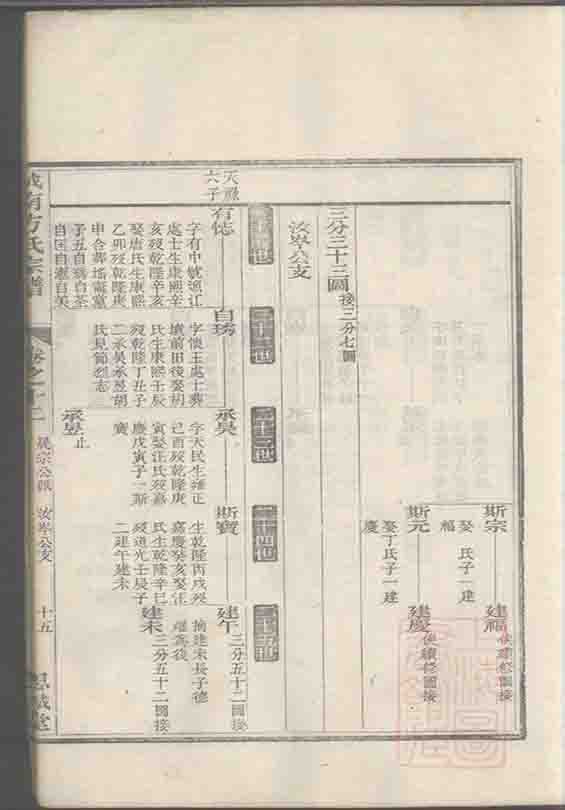 斯宗
娶 氏子一建
福
建福
俟續修圖接
斯元
娶丁氏子一建
慶
建慶
俟續修圖接
三分三十三圖
接三分七圖
汝岑公支
二十一世
二十二世
二十三世
二十四世
二十五世
天祿
六子
有德
字有中號通江
處士生康熙辛
亥歿乾隆辛亥
娶唐氏生康熙
乙卯歿乾隆庚
申合葬
子五自琇自茶
自匡自超自美
自琇
字懷玉處士葬
墳前田後娶胡
氏生康熙壬辰
歿乾隆丁丑子
二承昊承昱胡
氏見節烈志
承昊
字天民生雍正
己酉歿乾隆庚
寅娶汪氏歿嘉
慶戊寅子一斯
寶
承昱
止
斯寶
生乾隆丙戌歿
嘉慶癸亥娶汪
氏生乾隆辛巳
歿道光壬辰子
二建午建未
建午
三分五十二圖接
摘建未長子德
耀為後
建未
三分五十二圖接
城南方氏宗譜
卷之十二
晁宗公派
汝岑公支
十五
思誠堂